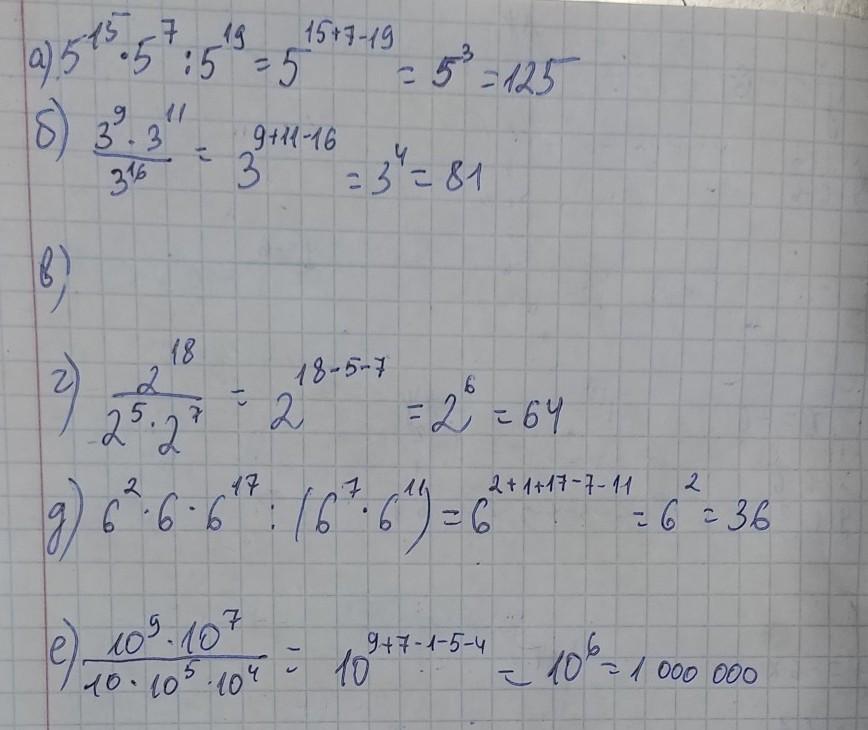 а) 5¹⁵ · 5⁷ : 5¹⁹ = 5¹⁵⁺⁷⁻¹⁹ = 5³ = 125
б) (3⁹ · 3¹¹)/3¹⁶ = 3⁹⁺¹¹⁻¹⁶ = 3⁴ = 81
в)
г) 2¹⁸/(2⁵ · 2⁷) = 2¹⁸⁻⁵⁻⁷ = 2⁶ = 64
д) 6² · 6 · 6¹⁷ : (6⁷ · 6¹¹) = 6²⁺¹⁺¹⁷⁻⁷⁻¹¹ = 6² = 36
е) (10⁹ · 10⁷)/(10 · 10⁵ · 10⁴) = 10⁹⁺⁷⁻¹⁻⁵⁻⁴ = 10⁶ = 1 000 000